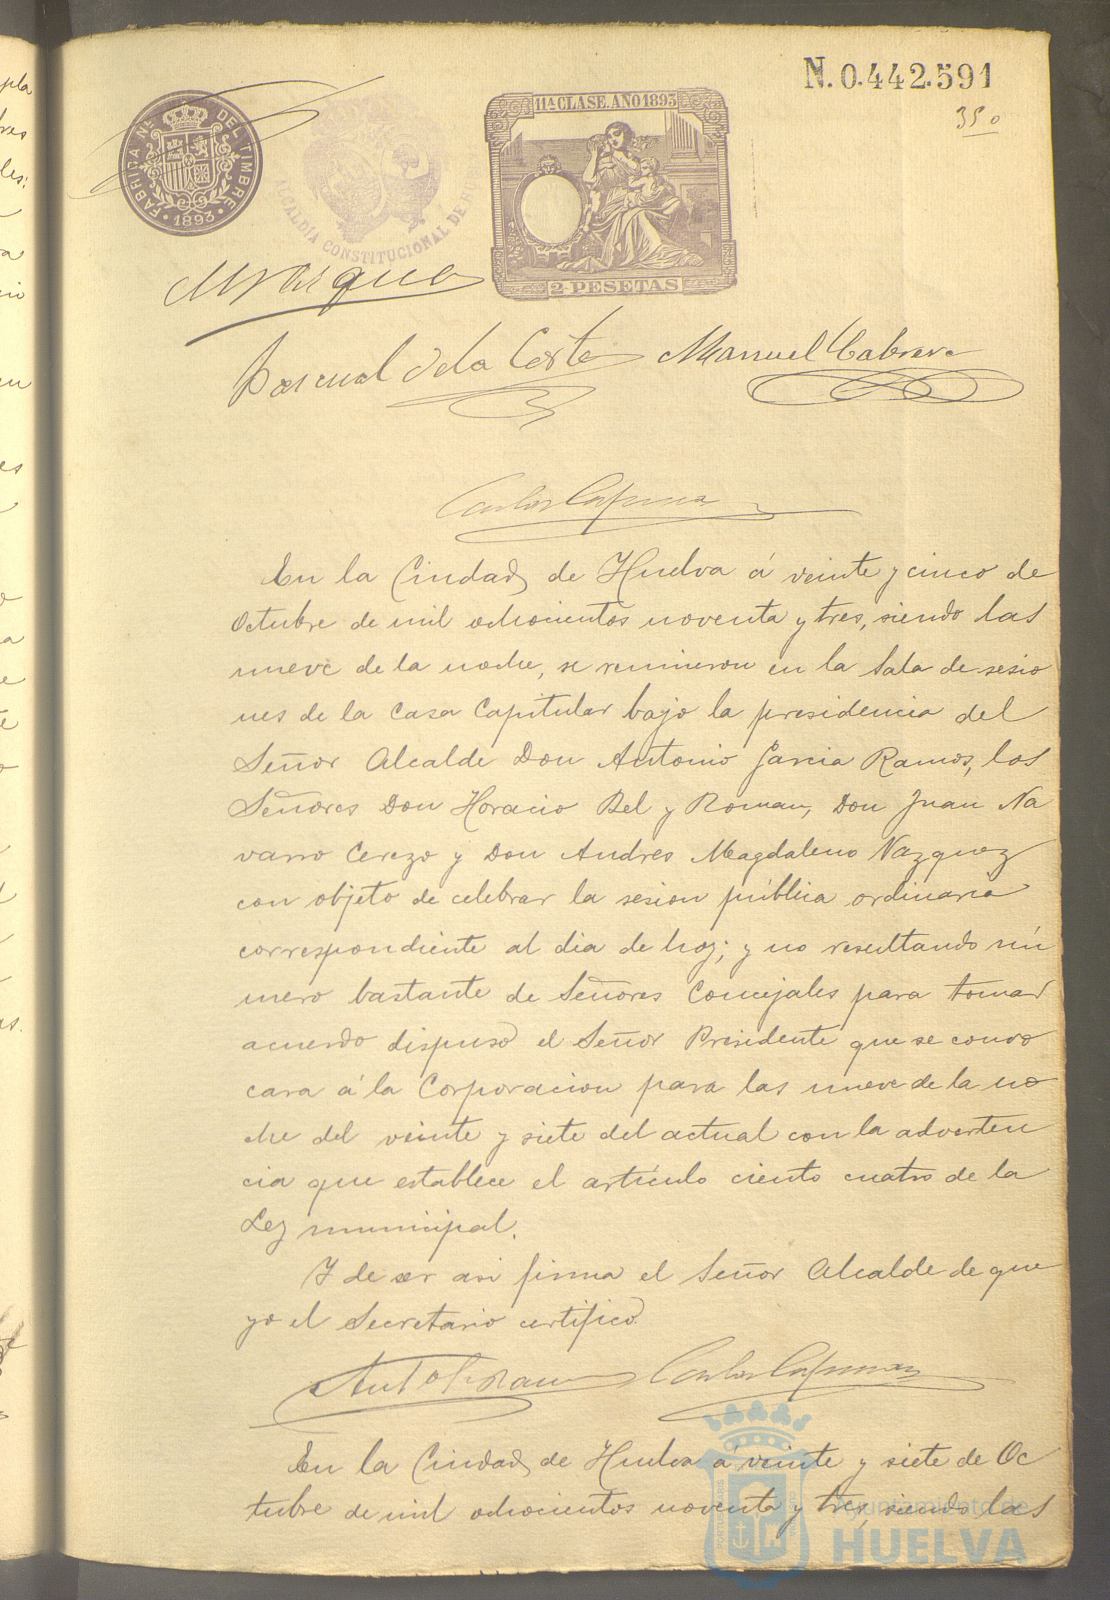 N. 0.442.591
35
FABRICA Nal DEL TIMBRE
1893
ALCALDÍA CONSTITUCIONAL DE
11ª CLASE. AÑO 1893
2 PESETAS
Pascual de la Corte Manuel Cabrera
Carlos
En la Ciudad de Huelva á veinte y cinco de
Octubre de mil ochocientos noventa y tres, siendo las
nueve de la noche, se reunieron en la Sala de sesio
nes de la Casa Capitular bajo la presidencia del
Señor Alcalde Don Antonio Garcia Ramos, los
Señores Don Horacio Bel y Roman, Don Juan Na
varro Cerezo y Don Andres Magdaleno Vazquez
con objeto de celebrar la sesion pública ordinaria
correspondiente al dia de hoy; y no resultando nú
mero bastante de Señores Concejales para tomar
acuerdo dispuso el Señor Presidente que se convo
cara á la Corporacion para las nueve de la no
che del veinte y siete del actual con la adverten
cia que establece el artículo ciento cuatro de la
Ley municipal.
Y de ser asi firma el Señor Alcalde de que
yo el Secretario certifico.
Carlos
En la Ciudad de Huelva á veinte y siete de Oc
tubre de mil ochocientos noventa y tres, siendo las
Ayuntamiento de
HUELVA